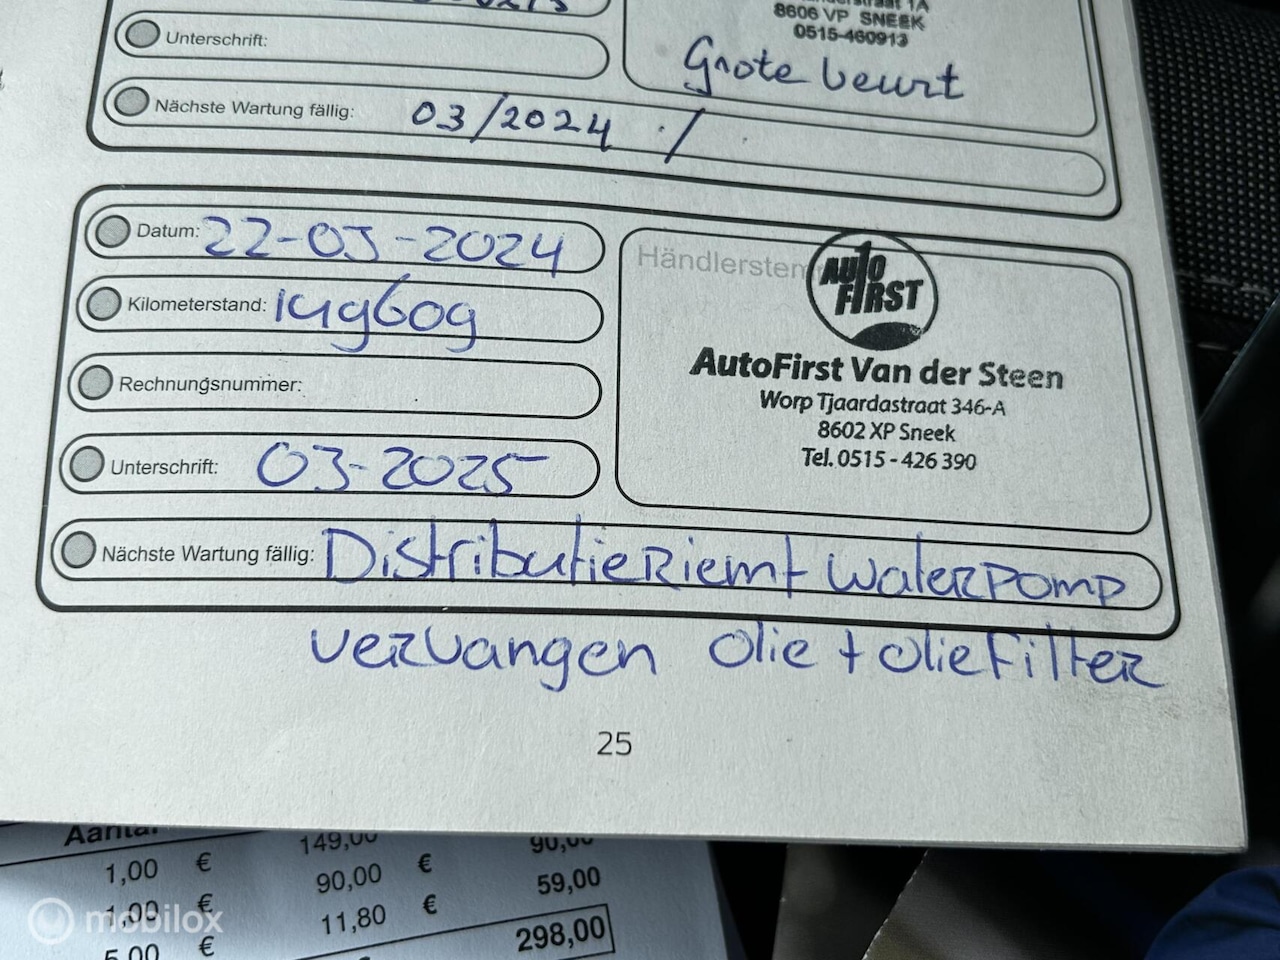 8606 VP SNEEK
0515-460913
Unterschrift:
Grote beurt
Nächste Wartung fällig: 03/2024 ./
Datum: 22-03-2024
Kilometerstand: 149609
Rechnungsnummer:
Unterschrift: 03-2025
Nächste Wartung fällig: Distributieriem+ waterpomp
vervangen olie + oliefilter
AUTO
FIRST
AutoFirst Van der Steen
Worp Tjaardastraat 346-A
8602 XP Sneek
Tel. 0515-426 390
25
Aantal
149,00 90,00
1,00 € 90,00 € 59,00
1,00 € 11,80 € 298,00
5,00 €
mobilox